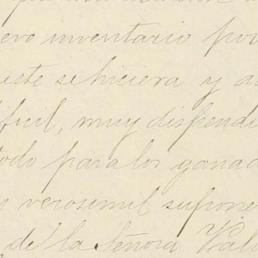 evo inventario por
este se hiciera y a
ficil, muy dispendi
todo para los ganad
verosimil supone
de la Señora Val